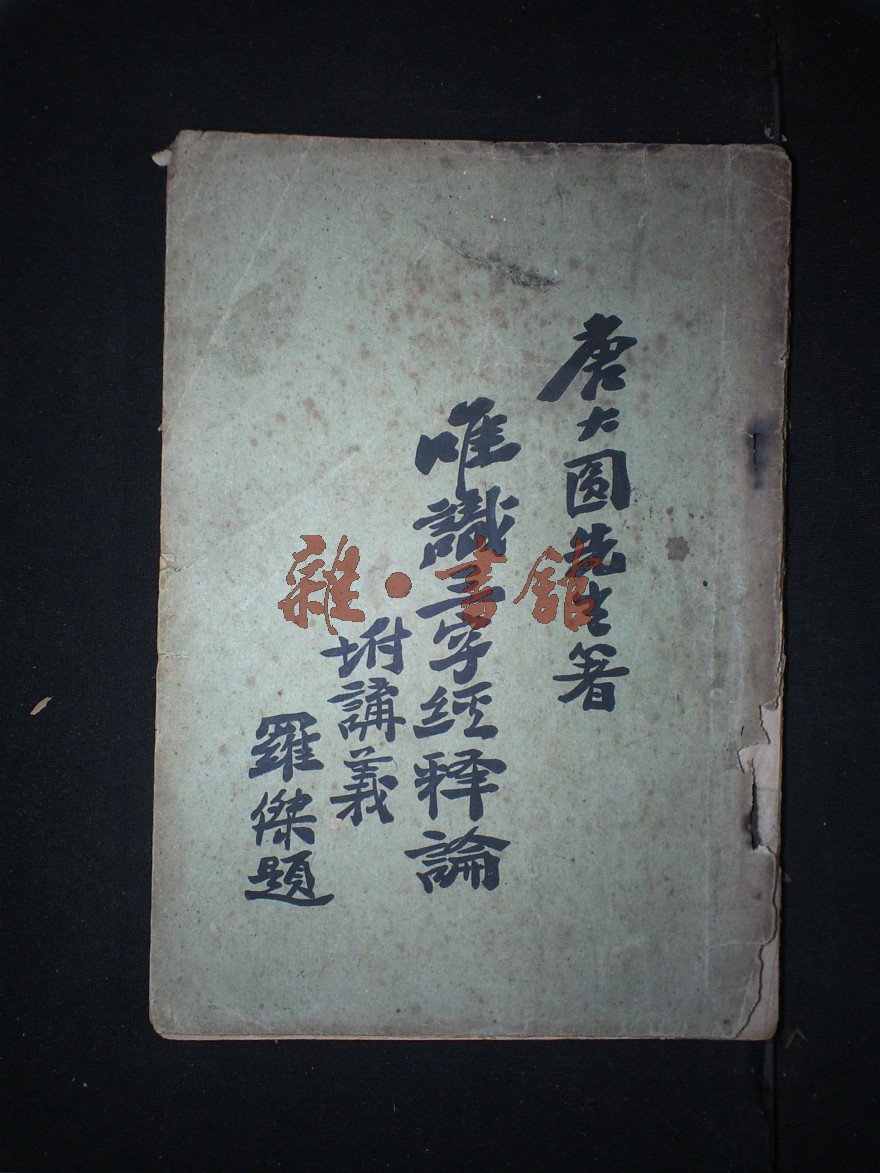 唐大圓先生著
唯識三字經释論
坿講義
羅傑題
雜·書館